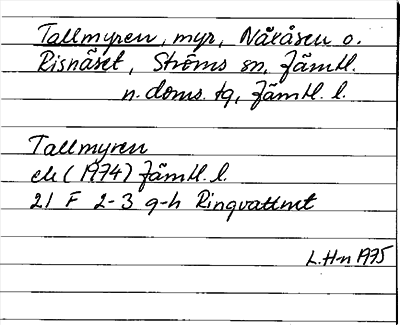 Tallmyren, myr, Nåkåsen o.
Risnäset, Ströms sn, Jämtl.
n. doms. tg, Jämtl. l.
Tallmyren
ek (1974) Jämtl. l.
21 F 2-3 g-h Ringvattnet
L. H-n 1975